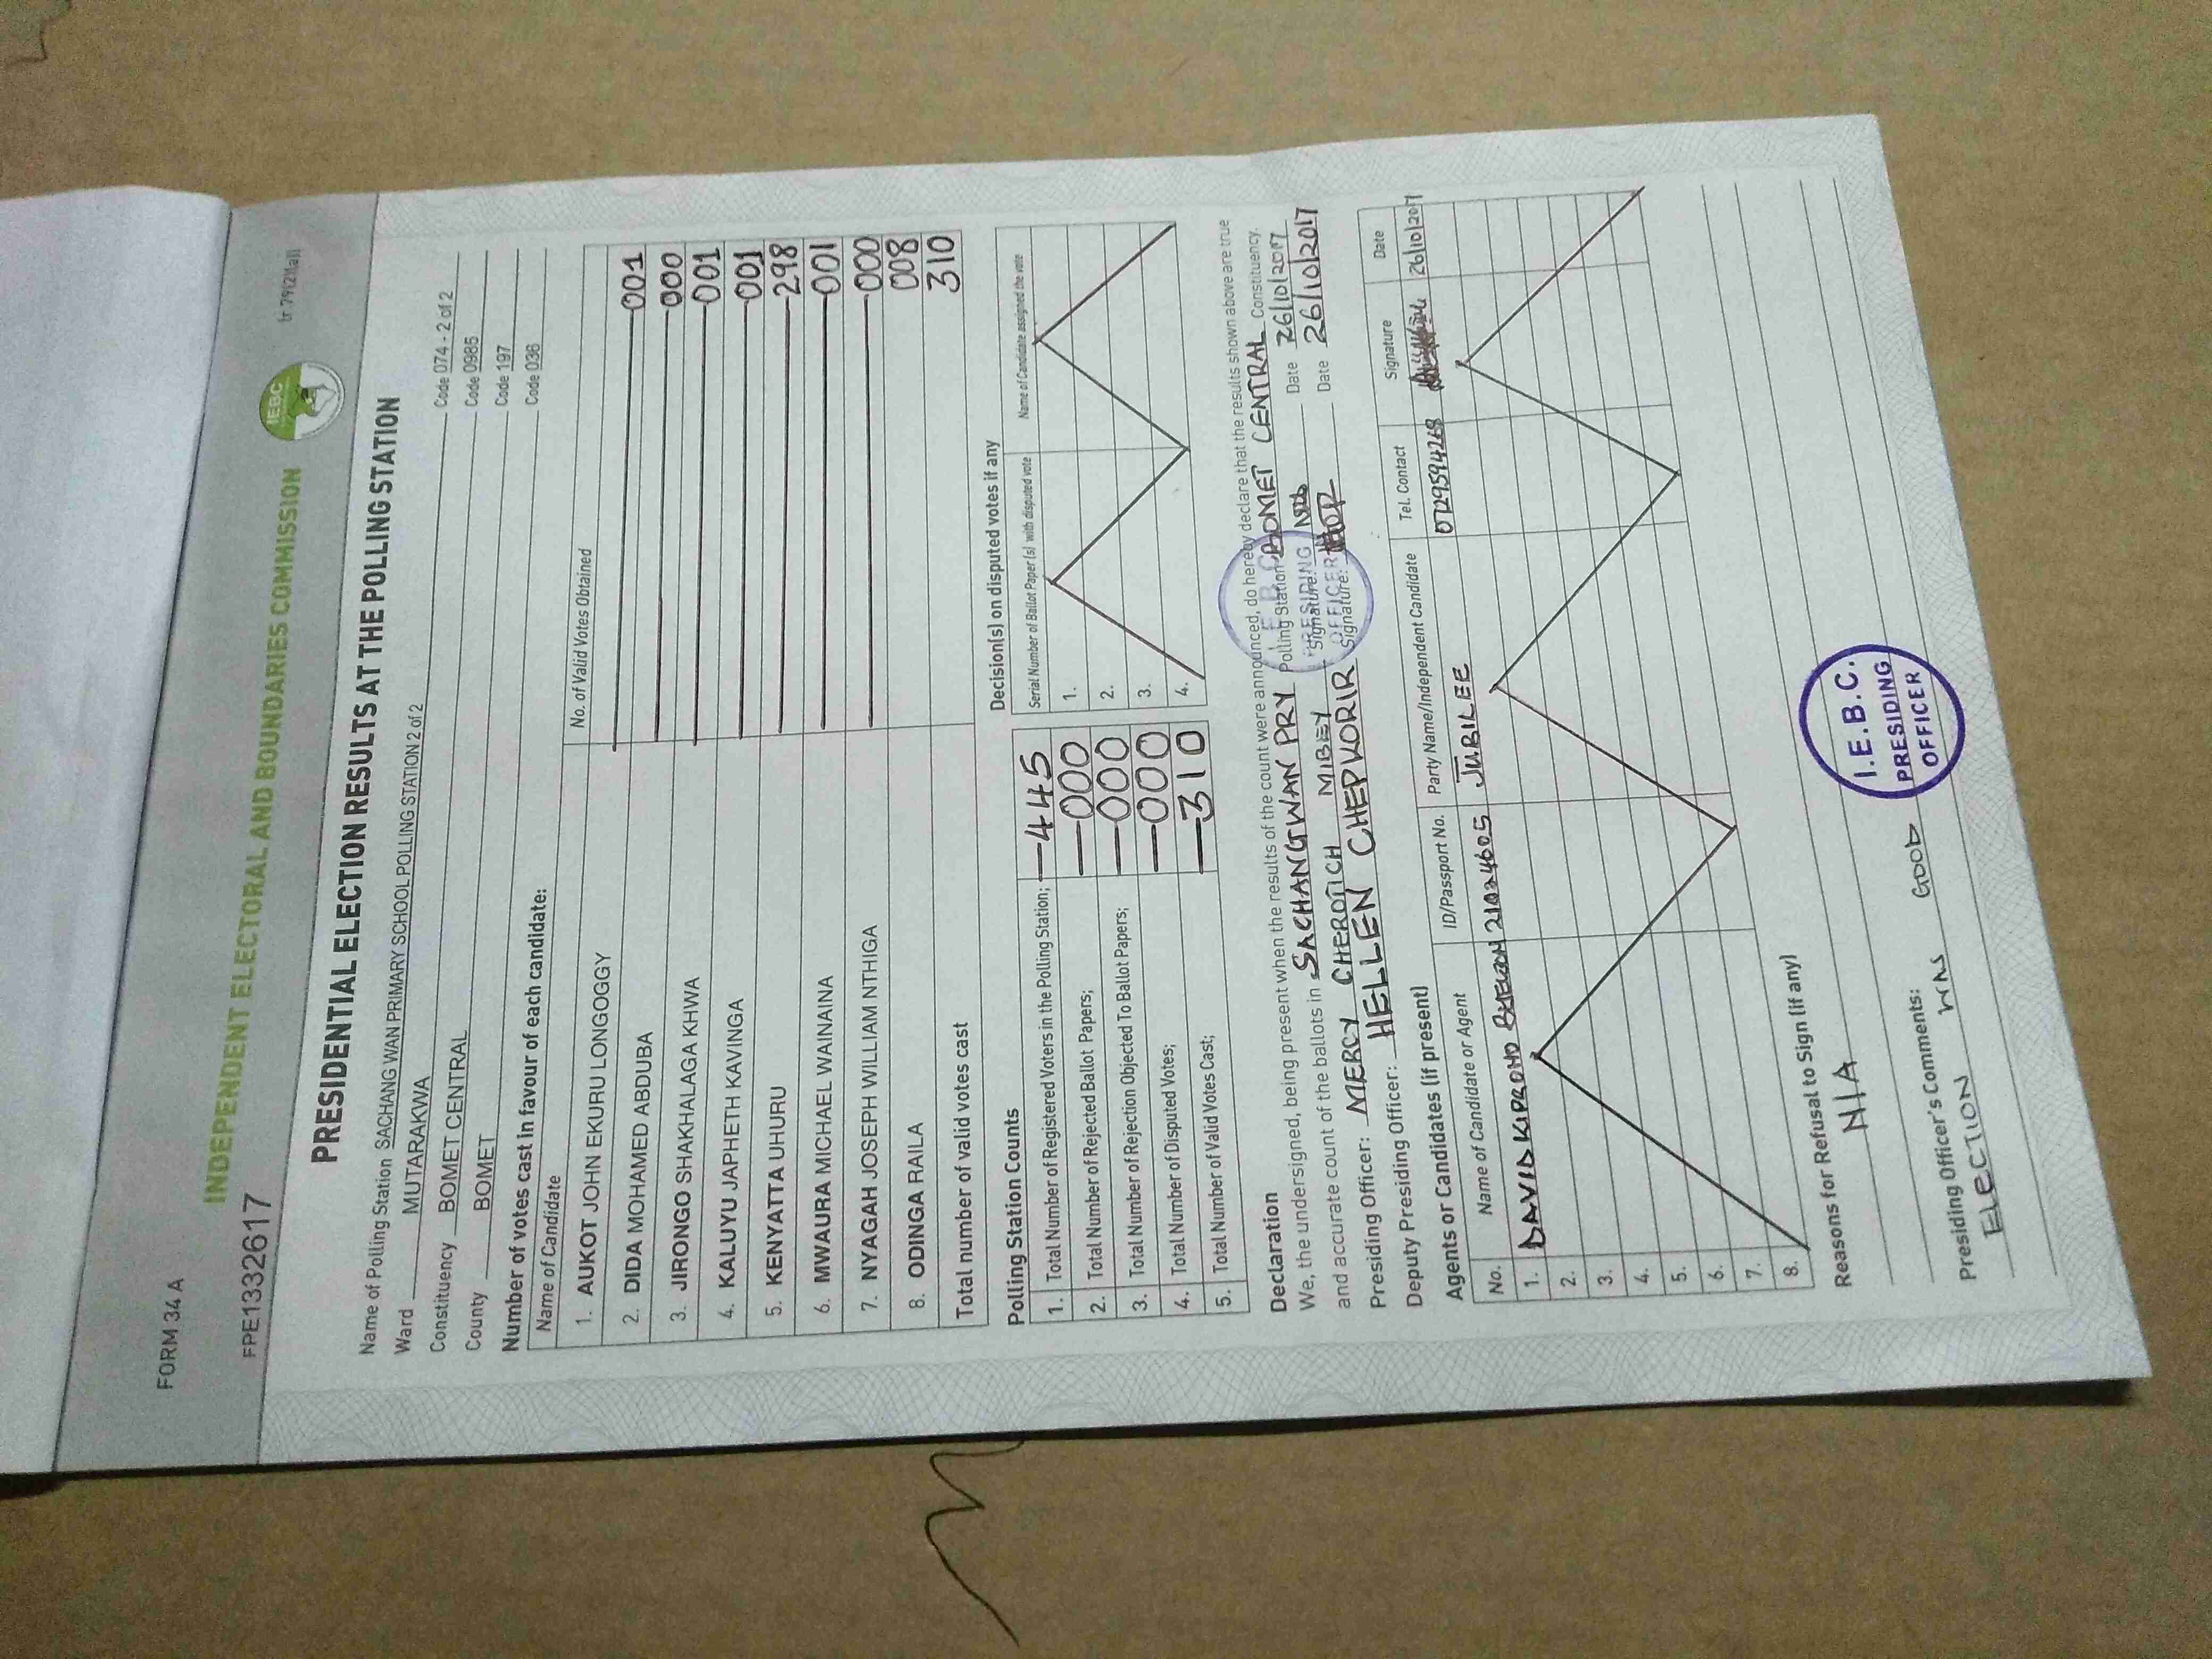 FORM 34 A
INDEPENDENT ELECTORAL AND BOUNDARIES COMMISSION
FPE1332617
IEBC
(r 79(2)(a))
PRESIDENTIAL ELECTION RESULTS AT THE POLLING STATION
Name of Polling Station SACHANG WAN PRIMARY SCHOOL POLLING STATION 2 of 2 Code 074 - 2 of 2
Ward MUTARAKWA Code 0985
Constituency BOMET CENTRAL Code 197
County BOMET Code 036
Number of votes cast in favour of each candidate:
Name of Candidate No. of Valid Votes Obtained
1. AUKOT JOHN EKURU LONGOGGY 001
2. DIDA MOHAMED ABDUBA 000
3. JIRONGO SHAKHALAGA KHWA 001
4. KALUYU JAPHETH KAVINGA 001
5. KENYATTA UHURU 298
6. MWAURA MICHAEL WAINAINA 001
7. NYAGAH JOSEPH WILLIAM NTHIGA 000
8. ODINGA RAILA 008
Total number of valid votes cast 310
Polling Station Counts
1. Total Number of Registered Voters in the Polling Station; 445
2. Total Number of Rejected Ballot Papers; 000
3. Total Number of Rejection Objected To Ballot Papers; 000
4. Total Number of Disputed Votes; 000
5. Total Number of Valid Votes Cast; 310
Decision(s) on disputed votes if any
Serial Number of Ballot Paper (s) with disputed vote Name of Candidate assigned the vote
1.
2.
3.
4.
Declaration
We, the undersigned, being present when the results of the count were announced, do hereby declare that the results shown above are true
and accurate count of the ballots in SACHANGWAN PRY Polling Station BOMET CENTRAL Constituency.
Presiding Officer: MERCY CHEROTICH MIBEY Signature: Date 26/10/2017
Deputy Presiding Officer: HELLEN CHEPKORIR Signature: Date 26/10/2017
I.E.B.C.
PRESIDING
OFFICER
Agents or Candidates (if present)
No. Name of Candidate or Agent ID/Passport No. Party Name/Independent Candidate Tel. Contact Signature Date
1. DAVID KIPROMO 21024605 JUBILEE 0729594268 26/10/2017
2.
3.
4.
5.
6.
7.
8.
Reasons for Refusal to Sign (if any)
N/A
Presiding Officer's Comments:
ELECTION WAS GOOD
I.E.B.C.
PRESIDING
OFFICER